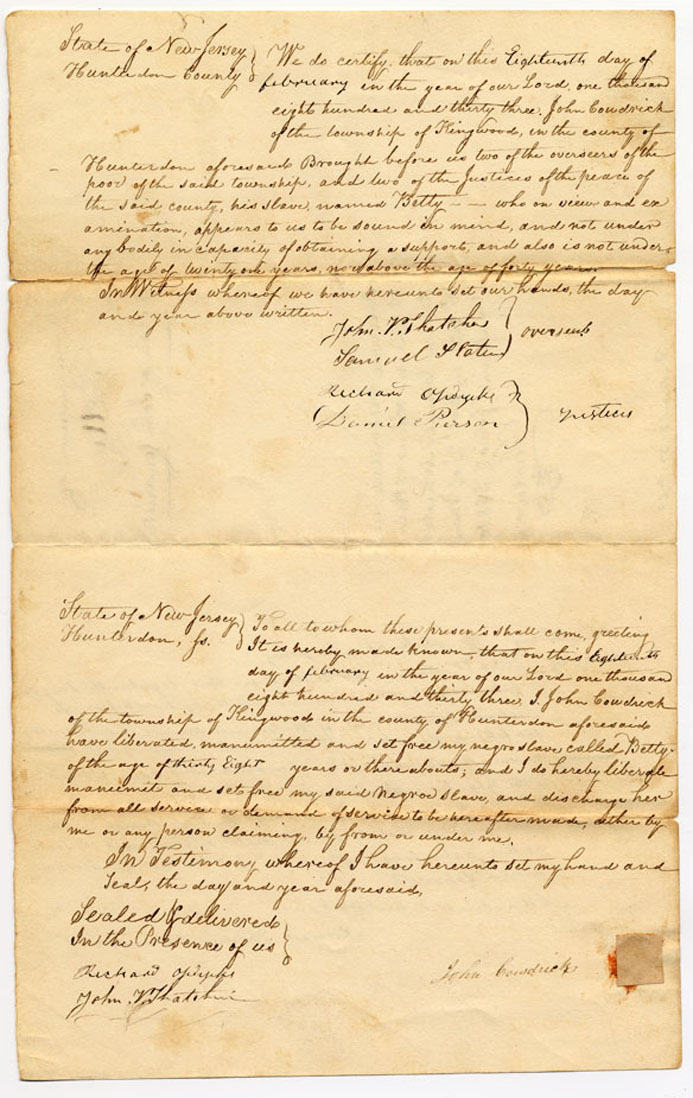 State of New Jersey } We do certify, that on this Eighteenth day of
Hunterdon County } february in the year of our Lord, one thousand
eight hundred and thirty three. John Cowdrick
of the township of Kingwood, in the county of
Hunterdon aforesaid Brought before us two of the overseers of the
poor of the said township, and two of the Justices of the peace of
the said county, his slave named Betty - - who on view and ex
amination, appears to us to be sound in mind, and not under
any bodily in capacity of obtaining a support, and also is not under
the age of twenty one years, nor above the age of forty years.
In Witness whereof we have hereunto set our hands, the day
and year above written.
John V. Thatcher }
Samuel Slater } overseers
Richard Opdycke }
Daniel Pierson } Justices
State of New Jersey } To all to whom these presents shall come, greeting
Hunterdon, Ss. } It is hereby made known, that on this Eighteenth
day of february in the year of our Lord one thousand
eight hundred and thirty three, I, John Cowdrick
of the township of Kingwood in the county of Hunterdon aforesaid
have liberated, manumitted and set free my negro slave called Betty
of the age of thirty Eight years or there abouts; and I do hereby liberate
manumit and set free my said Negroe slave, and discharge her
from all service or demand of service to be hereafter made, either by
me or any person claiming, by from or under me.
In Testimony whereof I have hereunto set my hand and
Seal, the day and year aforesaid,
Sealed & delivered }
In the Presence of us }
Richard Opdycke
John Cowdrick
John V. Thatcher